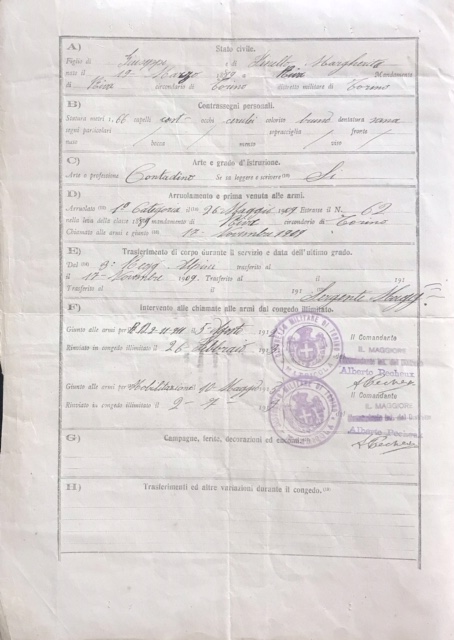 A) Stato civile.
Figlio di Giuseppe e di Margherita
nato il 12 Marzo a Mandamento
di circondario di Torino distretto militare di Torino
B) Contrassegni personali.
Statura metri 1,66 capelli cast. occhi cerulei colorito bruno dentatura sana
segni particolari / sopracciglia / fronte /
naso / bocca / mento / viso /
C) Arte e grado d'istruzione.
Arte o professione Contadino Se sa leggere e scrivere Si
D) Arruolamento e prima venuta alle armi.
Arruolato 1a Categoria il 26 Maggio 1909 Estrasse il N. 62
nella leva della classe 1889 mandamento di circondario di Torino
Chiamato alle armi e giunto 12 Novembre
E) Trasferimento di corpo durante il servizio e data dell'ultimo grado.
Dal 3° Regg. Alpini trasferito al
il 12 Novembre 1909. Trasferito al il 191
Trasferito al il 191 Sergente Magg.
F) Intervento alle chiamate alle armi dal congedo illimitato.
Giunto alle armi per 5 Agosto 191
Rinviato in congedo illimitato il 26 Febbraio 191
Il Comandante
IL MAGGIORE
Alberto Pecheux
Giunto alle armi per Mobilitazione 10 Maggio 191
Rinviato in congedo illimitato il 2 - 7 - 191
Il Comandante
IL MAGGIORE
Alberto Pecheux
G) Campagne, ferite, decorazioni ed encomi.
H) Trasferimenti ed altre variazioni durante il congedo.